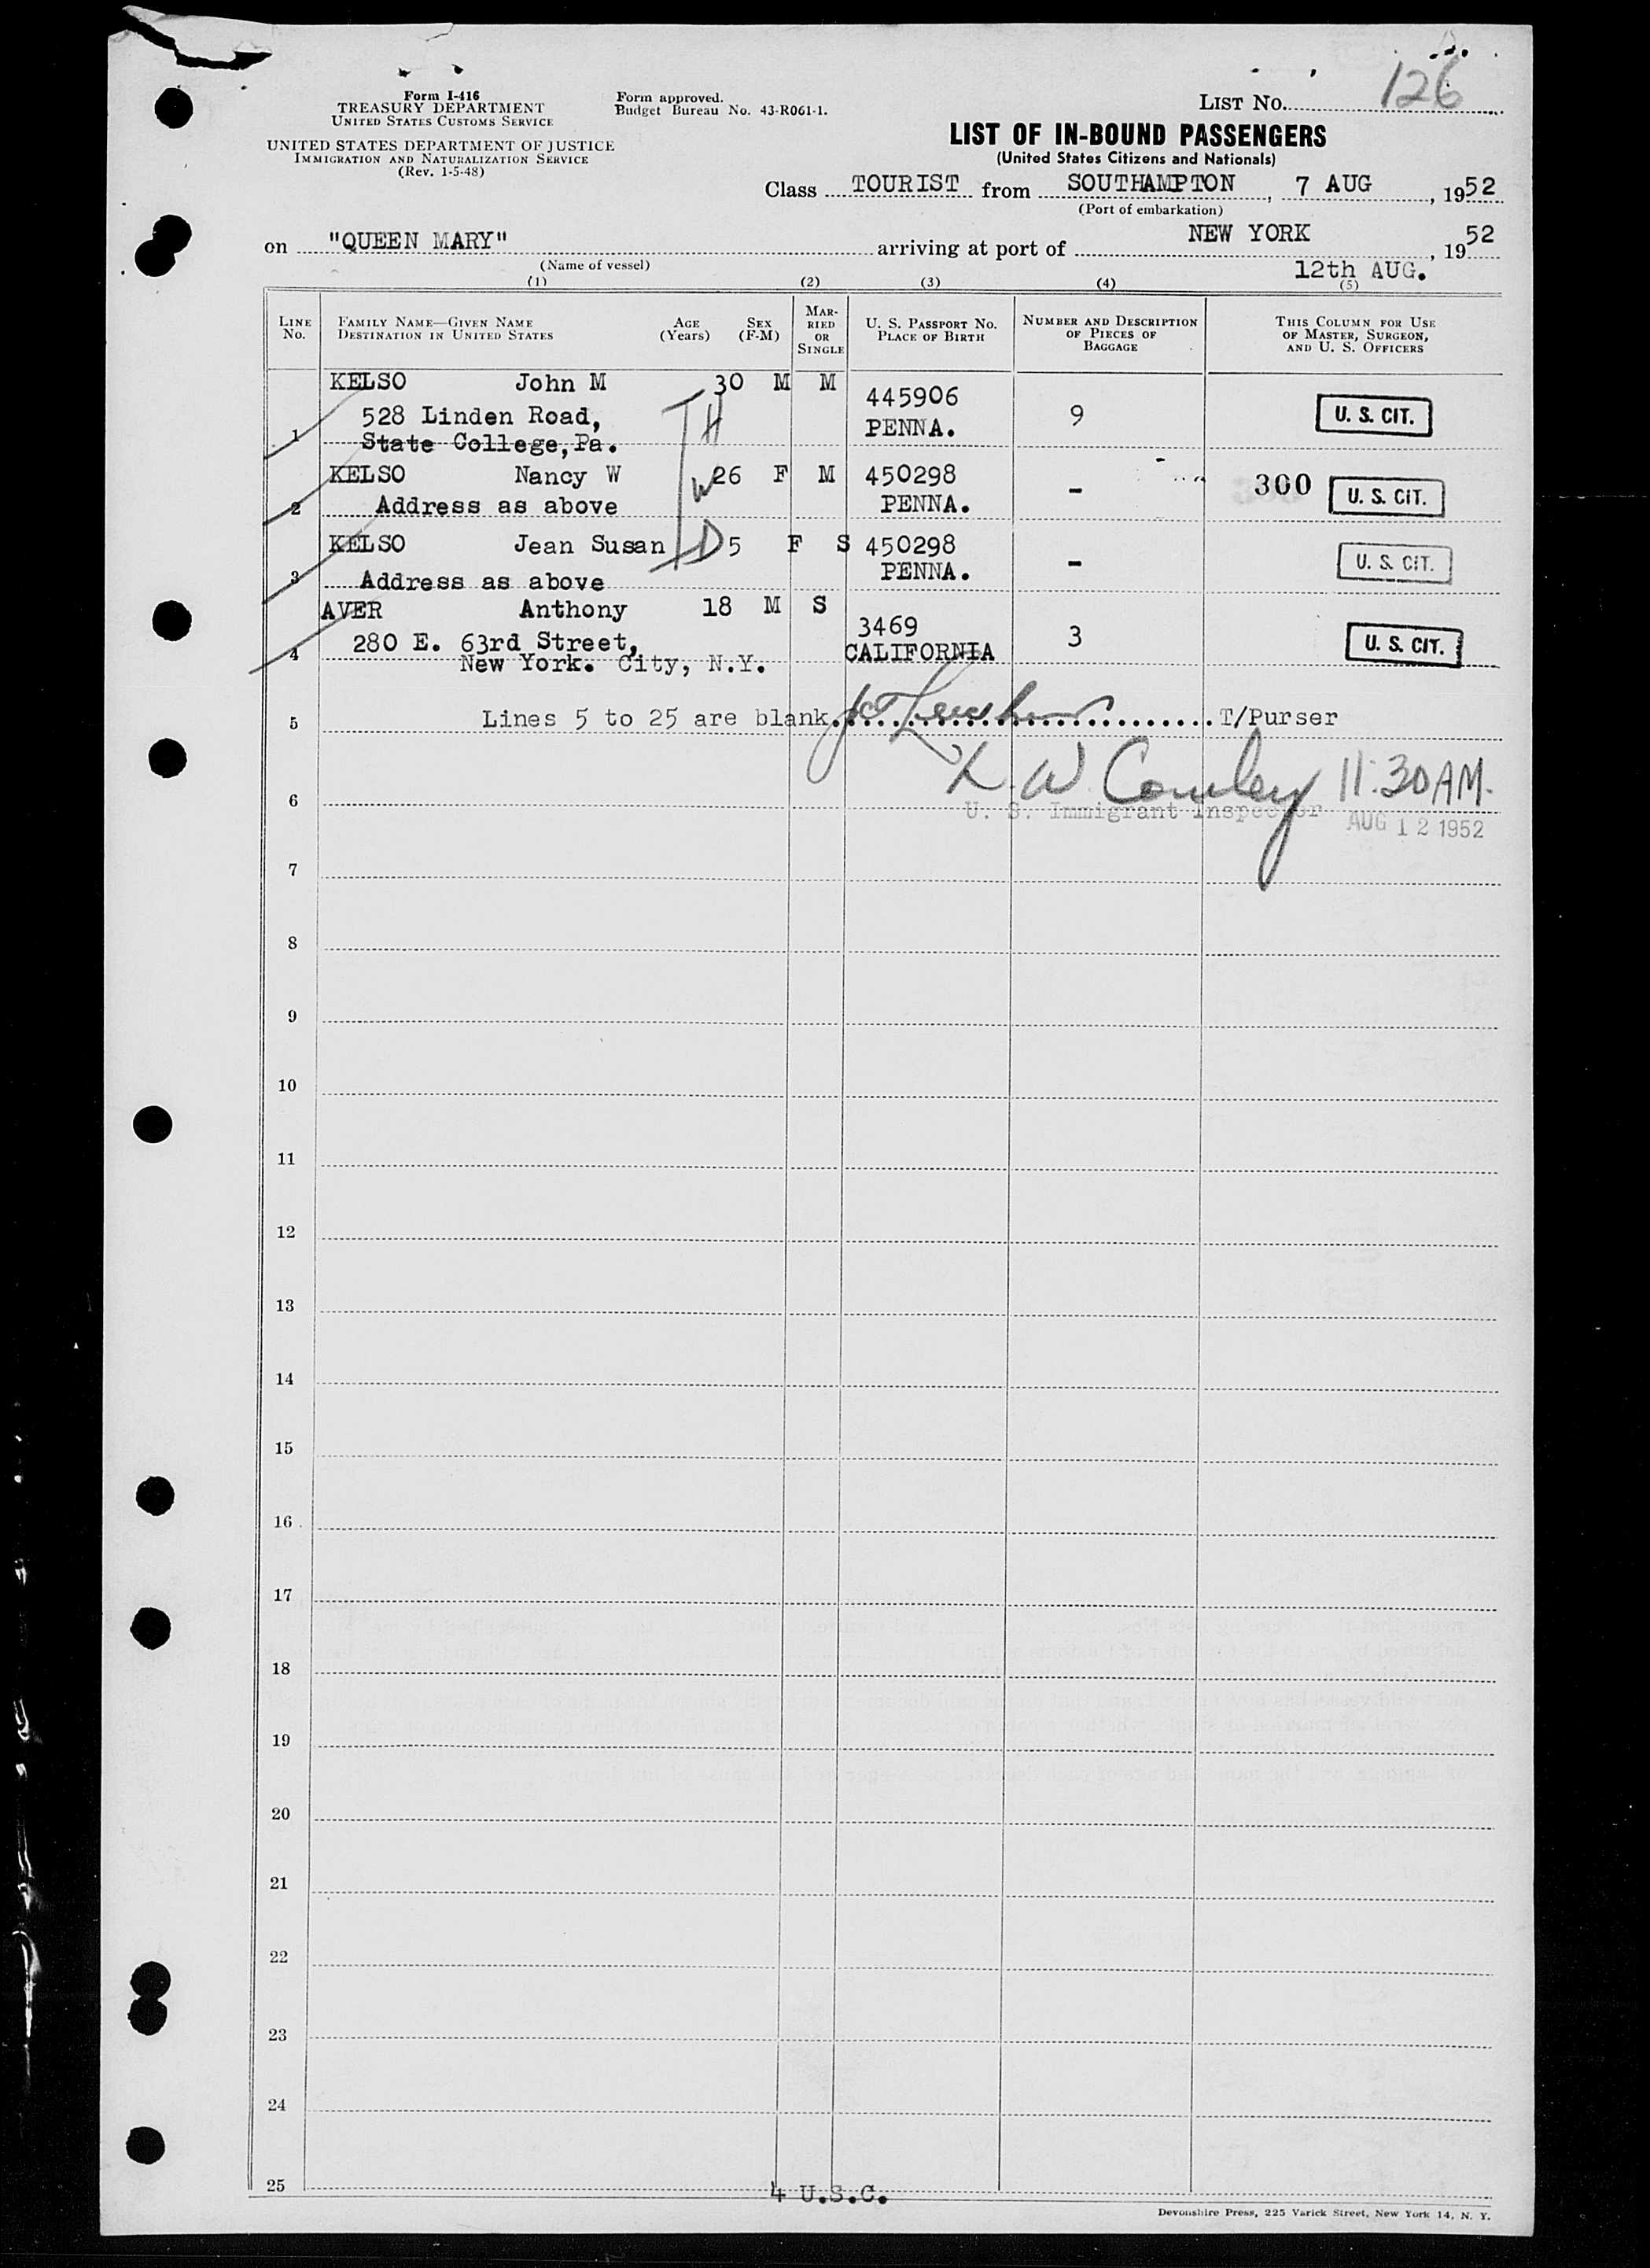 Form I-416
TREASURY DEPARTMENT
UNITED STATES CUSTOMS SERVICE
UNITED STATES DEPARTMENT OF JUSTICE
IMMIGRATION AND NATURALIZATION SERVICE
(Rev. 1-5-48)
Form approved.
Budget Bureau No. 43-R061-1.
LIST No. 126
LIST OF IN-BOUND PASSENGERS
(United States Citizens and Nationals)
Class TOURIST from SOUTHAMPTON, 7 AUG, 1952
(Port of embarkation)
on "QUEEN MARY" arriving at port of NEW YORK, 1952
(Name of vessel) 12th AUG.
(1) (2) (3) (4) (5)
LINE No. FAMILY NAME—GIVEN NAME DESTINATION IN UNITED STATES AGE (Years) SEX (F-M) MARRIED OR SINGLE U. S. PASSPORT No. PLACE OF BIRTH NUMBER AND DESCRIPTION OF PIECES OF BAGGAGE THIS COLUMN FOR USE OF MASTER, SURGEON, AND U. S. OFFICERS
KELSO John M 30 M M 445906
528 Linden Road, H PENNA. 9 U. S. CIT.
1 State College, Pa.
KELSO Nancy W W 26 F M 450298 - 300 U. S. CIT.
2 Address as above PENNA.
KELSO Jean Susan D 5 F S 450298 - U. S. CIT.
3 Address as above PENNA.
AVER Anthony 18 M S 3469
280 E. 63rd Street, CALIFORNIA 3 U. S. CIT.
4 New York. City, N.Y.
5 Lines 5 to 25 are blank. T/Purser
11:30 AM.
6 U. S. Immigrant Inspector AUG 12 1952
7
8
9
10
11
12
13
14
15
16
17
18
19
20
21
22
23
24
25
4 U.S.C.
Devonshire Press, 225 Varick Street, New York 14, N. Y.